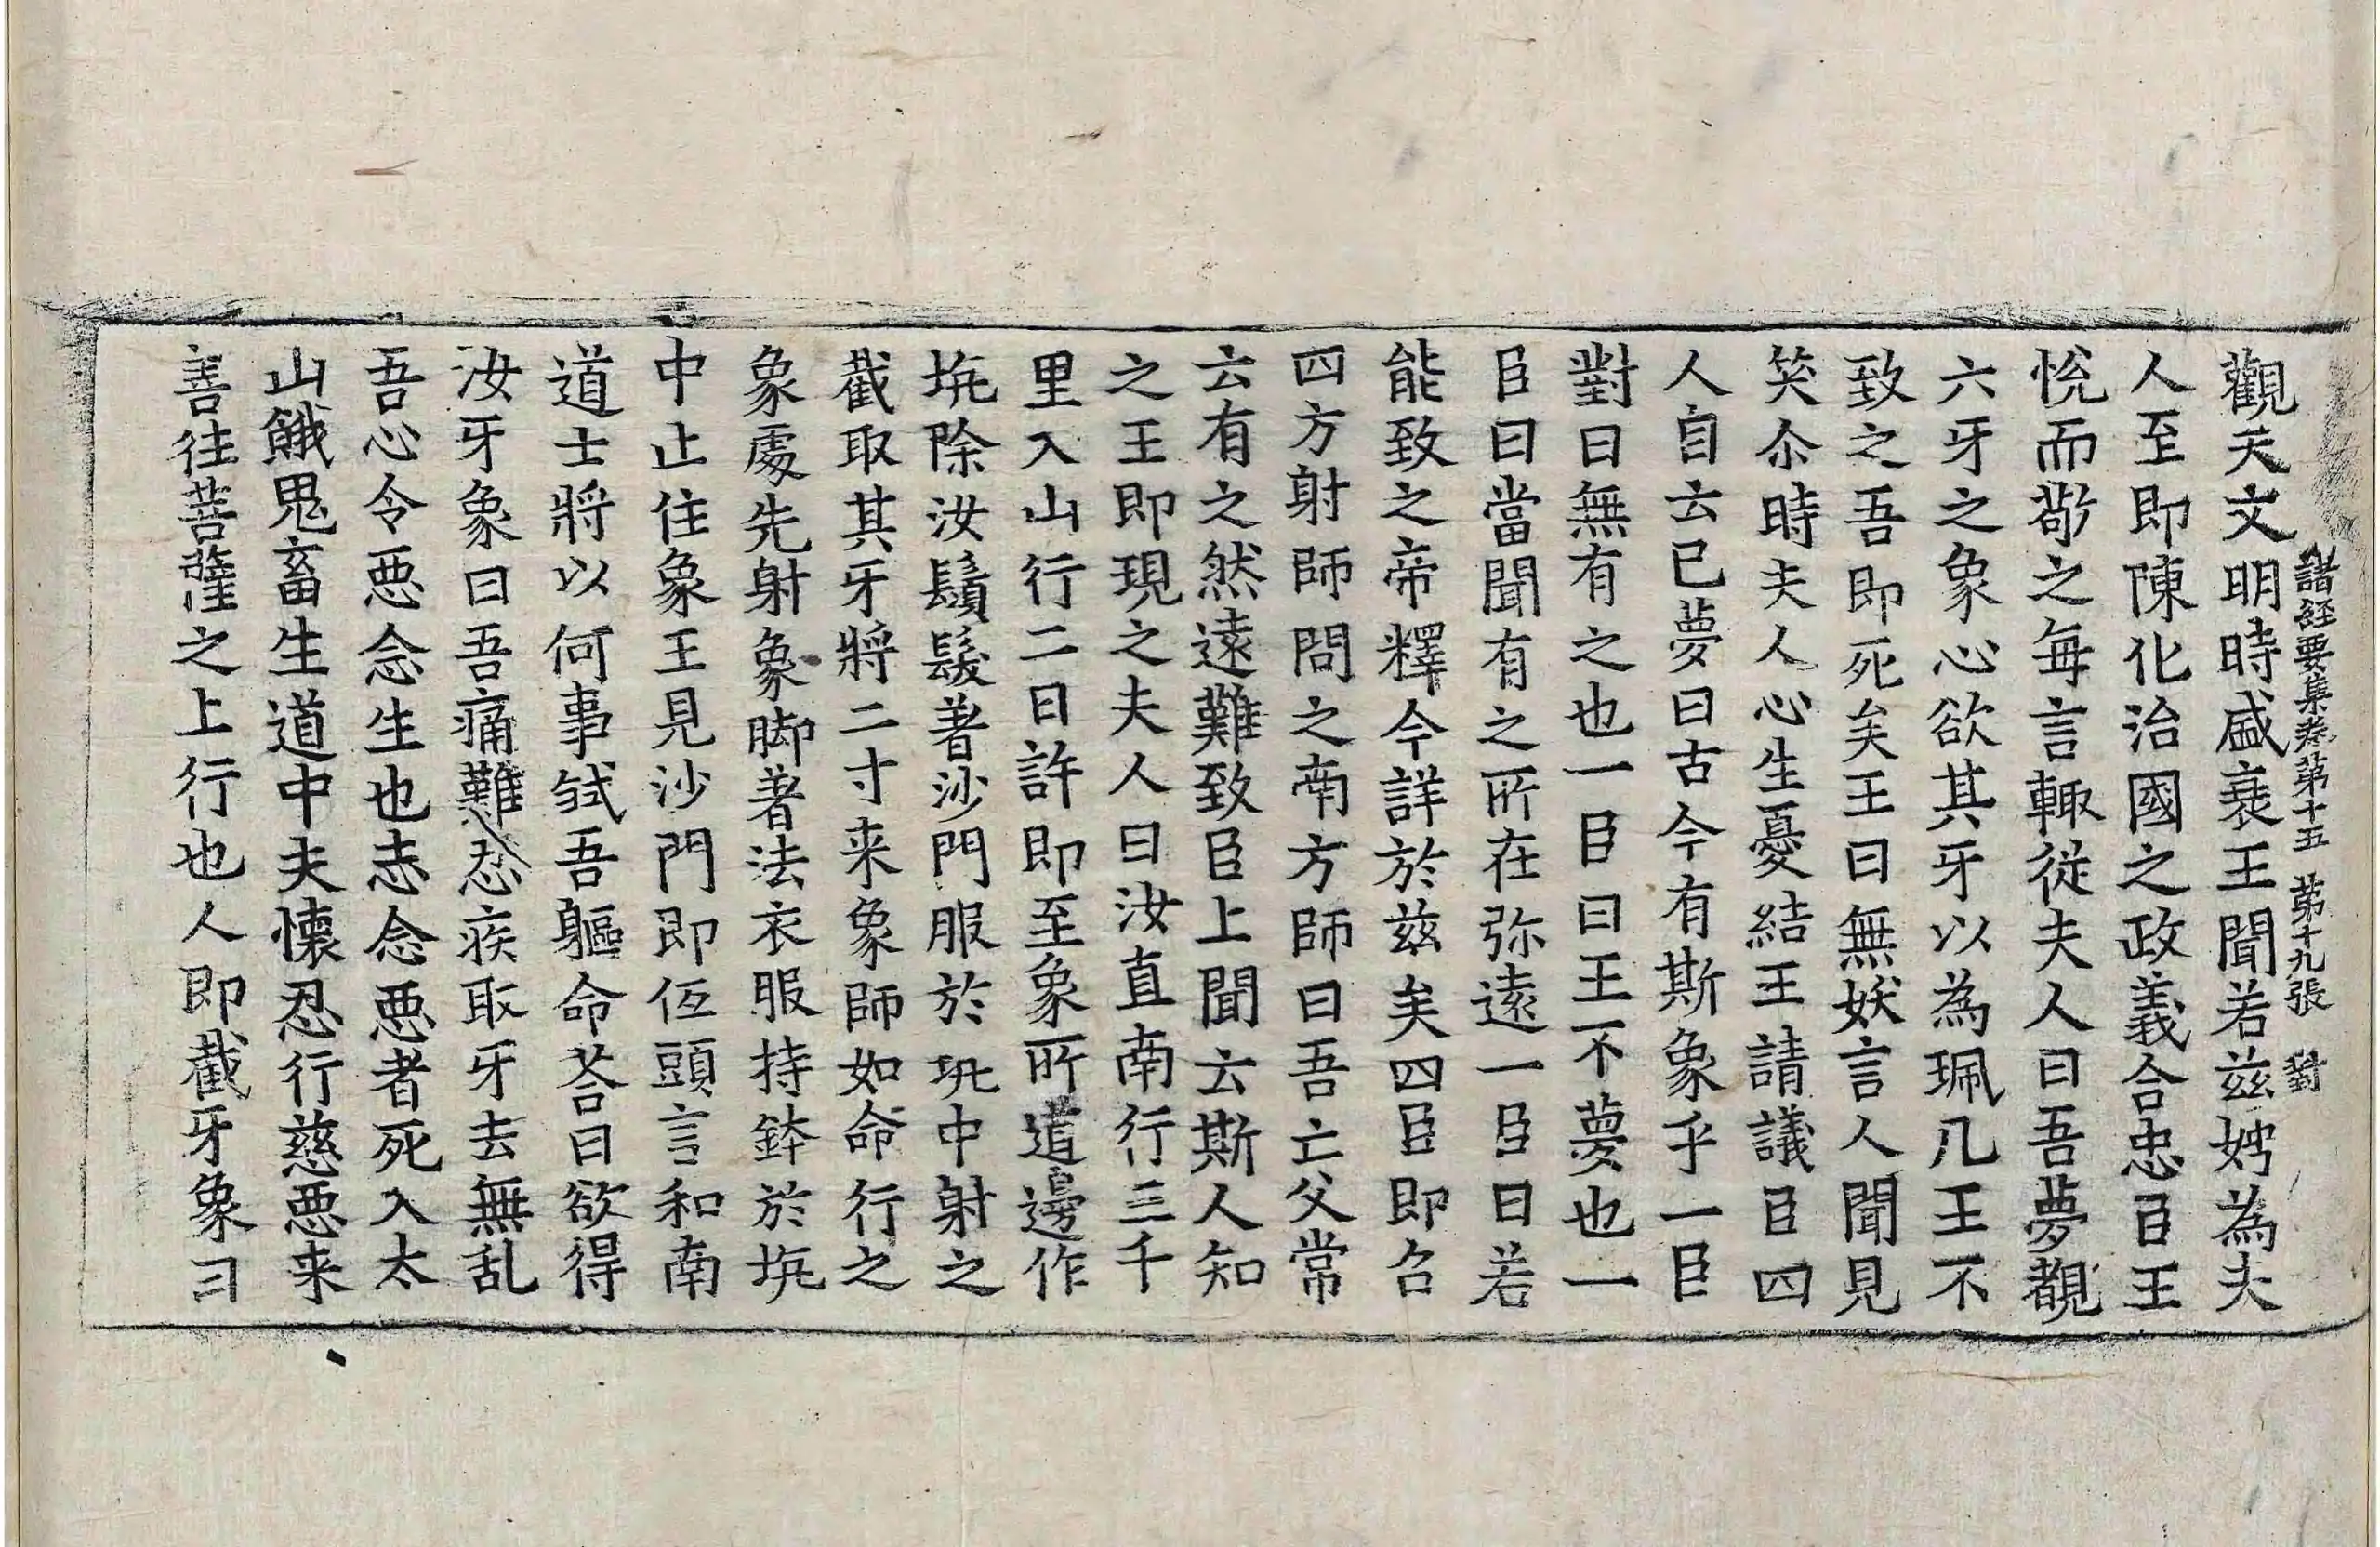 諸經要集卷第十五 第十九張 對
觀天文明時盛衰王聞若茲娉為夫
人至即陳化治國之政義合忠臣王
悅而敬之每言輙從夫人曰吾夢覩
六牙之象心欲其牙以為珮几王不
致之吾即死矣王曰無妖言人聞見
笑尒時夫人心生憂結王請議臣四
人自云已夢曰古今有斯象乎一臣
對曰無有之也一臣曰王不夢也一
臣曰當聞有之所在弥遠一臣曰若
能致之帝釋今詳於茲矣四臣即召
四方射師問之南方師曰吾亡父常
云有之然遠難致臣上聞云斯人知
之王即現之夫人曰汝直南行三千
里入山行二日許即至象所道邊作
坑除汝鬚髮著沙門服於坑中射之
截取其牙將二寸来象師如命行之
象處先射象脚著法衣服持鉢於坑
中止住象王見沙門即低頭言和南
道士將以何事弑吾軀命荅曰欲得
汝牙象曰吾痛難忍疾取牙去無乱
吾心令惡念生也志念惡者死入太
山餓鬼畜生道中夫懷忍行慈惡来
善往菩薩之上行也人即截牙象曰